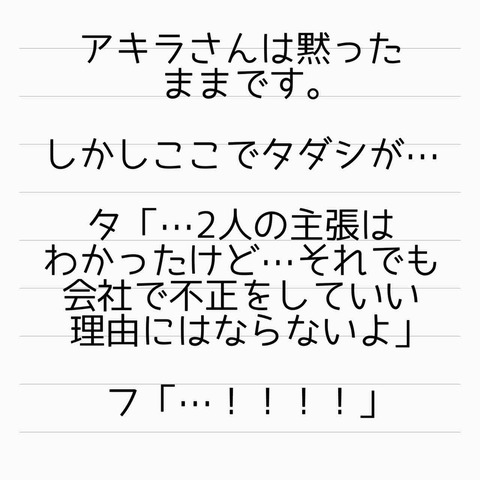 アキラさんは黙った
ままです。
しかしここでタダシが…
タ「…2人の主張は
わかったけど…それでも
会社で不正をしていい
理由にはならないよ」
フ「…！！！！」